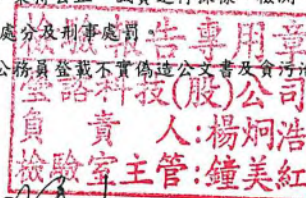 處分及刑事處罰。
公務員登載不實偽造公文書及貪污
檢驗報告專用章
瑩諮科技(股)公司
負責人:楊炯浩
檢驗室主管:鐘美紅